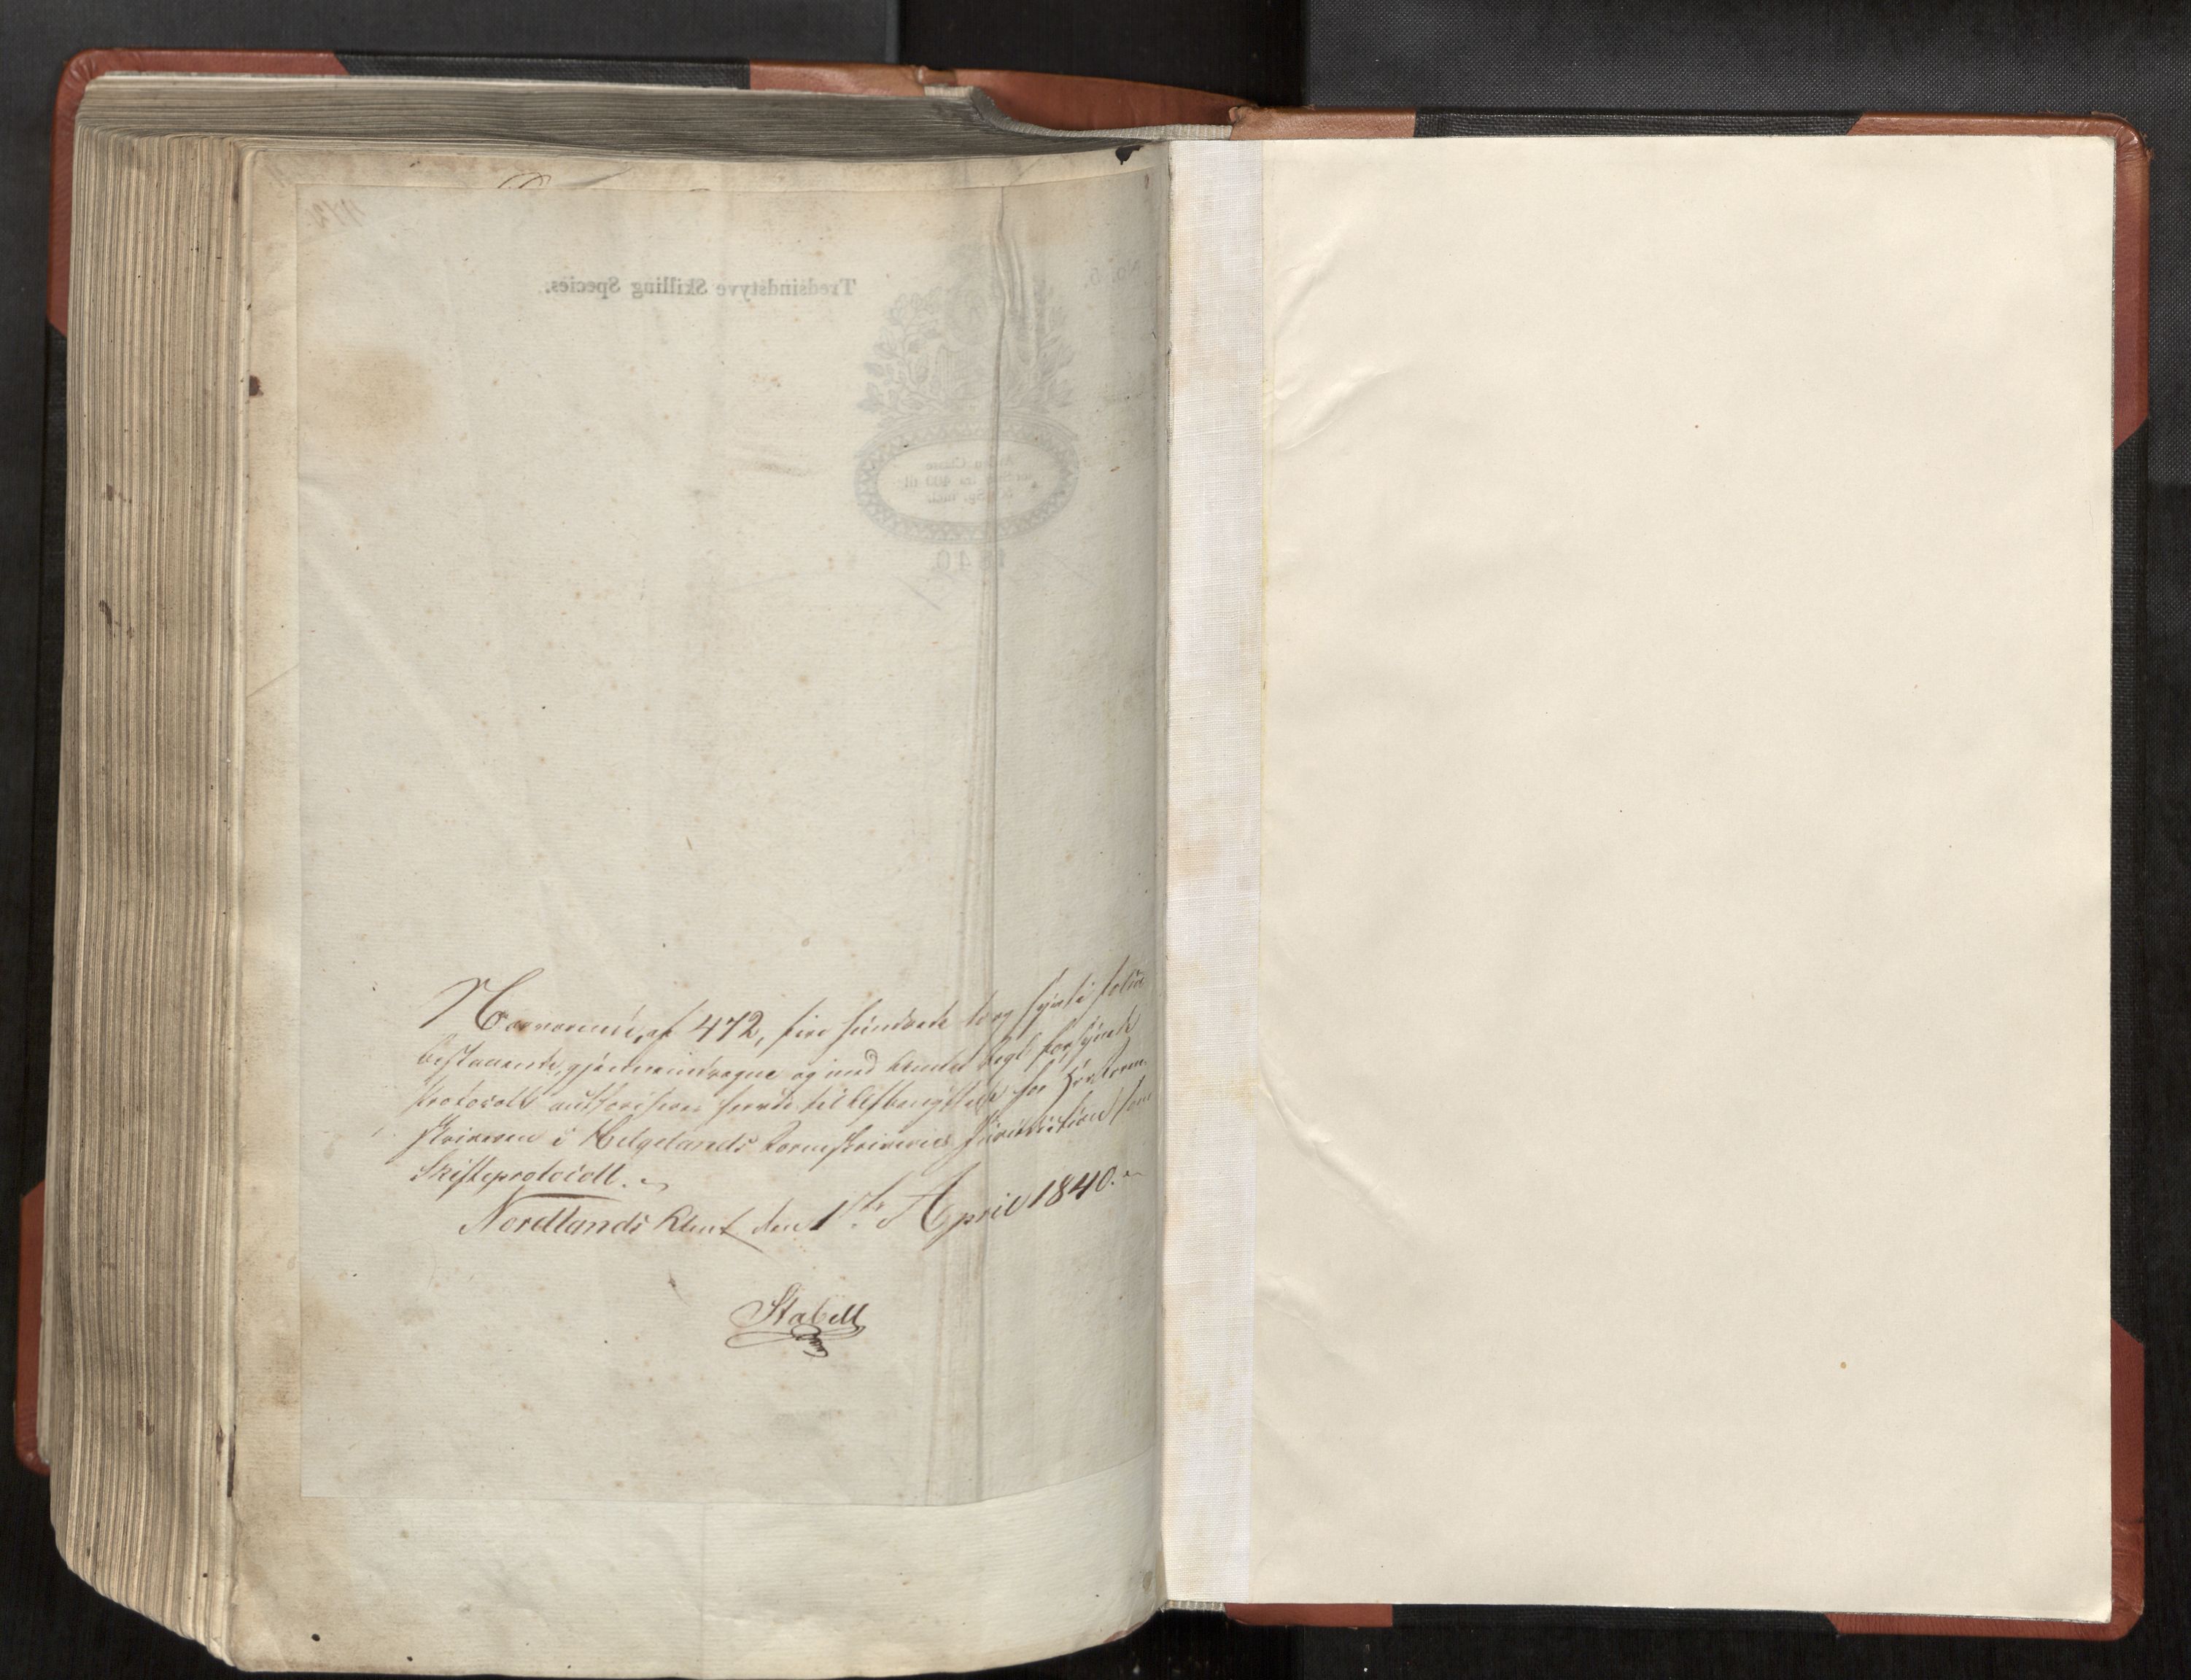 Tredsindstyve Skilling Species.
No. 6.
1840.
Nærværende, af 472, fire hundrede to og sytti folier
bestaaende, gjennemdragne og med Amtets Segl forsynede
Protocoll authoriseres herved til Afbenyttelse for Hr: Soren-
skriveren i Helgelands Sorenskriveries Jurisdiction som
Skifteprotocoll.
Nordlands Amt den 1ste April 1840.
Stabell